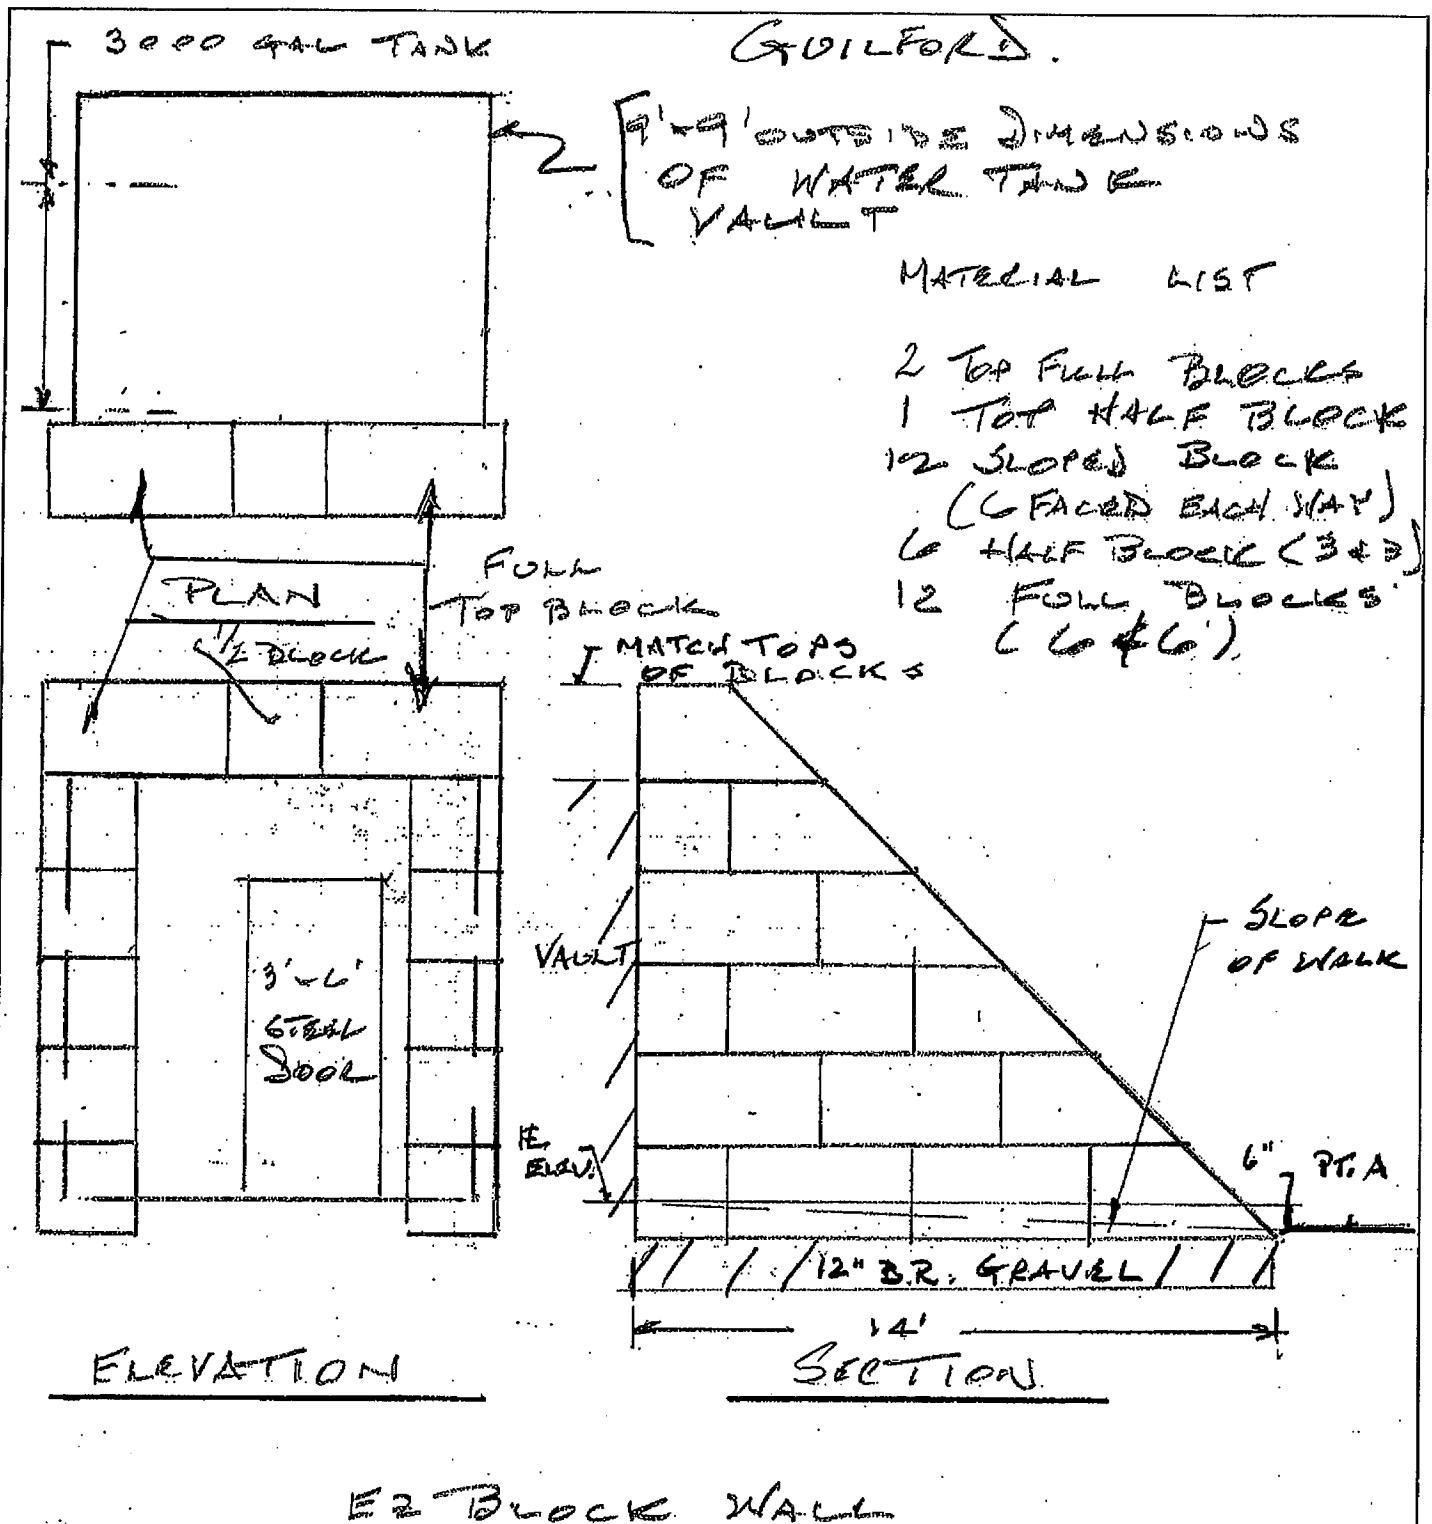 3000 GAL TANK
GUILFORD.
9'-9' OUTSIDE DIMENSIONS
OF WATER TANK
VAULT
MATERIAL LIST
2 TOP FULL BLOCKS
1 TOP HALF BLOCK
12 SLOPED BLOCK
(6 FACED EACH WAY)
6 HALF BLOCK (3 & 3)
12 FULL BLOCKS
(6 & 6)
PLAN
FULL
TOP BLOCK
1/2 BLOCK
MATCH TOPS
OF BLOCKS
VAULT
SLOPE
OF WALK
3'-6'
STEEL
DOOR
ELEV.
6" PT. A
12" B.R. GRAVEL
14'
ELEVATION
SECTION
EZ BLOCK WALL